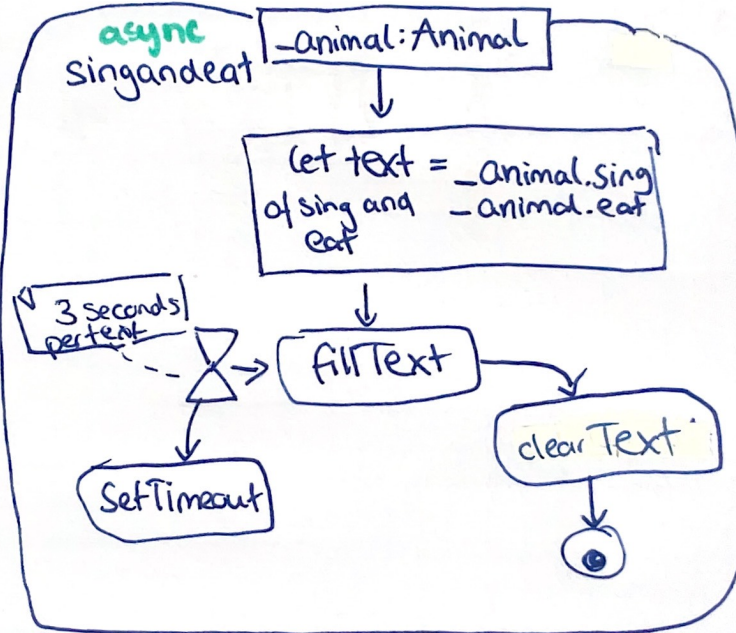 async
singandeat
_animal:Animal
let text = _animal.sing
of sing and _animal.eat
eat
3 seconds
per text
fillText
clear Text
SetTimeout